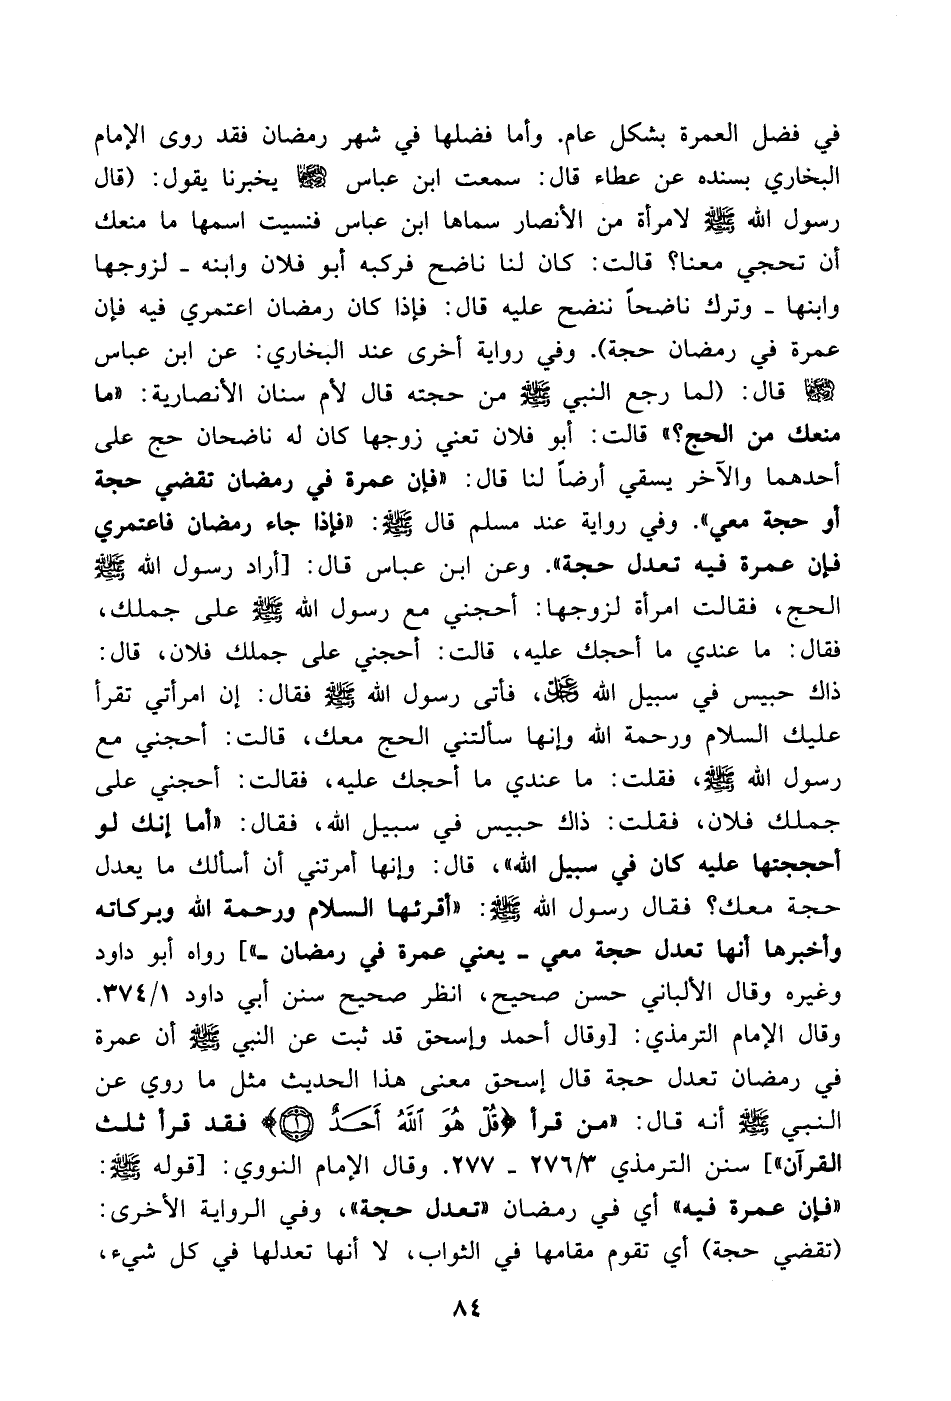 في فضل العمرة بشكل عام. وأما فضلها في شهر رمضان فقد روى الإمام
البخاري بسنده عن عطاء قال: سمعت ابن عباس ﷺ يخبرنا يقول: (قال
رسول الله ﷺ لامرأة من الأنصار سماها ابن عباس فنسيت اسمها ما منعك
أن تحجي معنا؟ قالت: كان لنا ناضح فركبه أبو فلان وابنه - لزوجها
وابنها - وترك ناضحاً ننضح عليه قال: فإذا كان رمضان اعتمري فيه فإن
عمرة في رمضان حجة). وفي رواية أخرى عند البخاري: عن ابن عباس
قال: (لما رجع النبي ﷺ من حجته قال لأم سنان الأنصارية: «ما
منعك من الحج؟» قالت: أبو فلان تعني زوجها كان له ناضحان حج على
أحدهما والآخر يسقي أرضاً لنا قال: «فإن عمرة في رمضان تقضي حجة
أو حجة معي». وفي رواية عند مسلم قال ﷺ: «فإذا جاء رمضان فاعتمري
فإن عمرة فيه تعدل حجة». وعن ابن عباس قال: [أراد رسول الله ﷺ
الحج، فقالت امرأة لزوجها: أحجني مع رسول الله ﷺ على جملك،
فقال: ما عندي ما أحجك عليه، قالت: أحجني على جملك فلان، قال:
ذاك حبيس في سبيل الله عز وجل، فأتى رسول الله ﷺ فقال: إن امرأتي تقرأ
عليك السلام ورحمة الله وإنها سألتني الحج معك، قالت: أحجني مع
رسول الله ﷺ، فقلت: ما عندي ما أحجك عليه، فقالت: أحجني على
جملك فلان، فقلت: ذاك حبيس في سبيل الله، فقال: «أما إنك لو
أحججتها عليه كان في سبيل الله»، قال: وإنها أمرتني أن أسألك ما يعدل
حجة معك؟ فقال رسول الله ﷺ: «أقرئها السلام ورحمة الله وبركاته
وأخبرها أنها تعدل حجة معي - يعني عمرة في رمضان -»] رواه أبو داود
وغيره وقال الألباني حسن صحيح، انظر صحيح سنن أبي داود ٣٧٤/١.
وقال الإمام الترمذي: [وقال أحمد وإسحق قد ثبت عن النبي ﷺ أن عمرة
في رمضان تعدل حجة قال إسحق معنى هذا الحديث مثل ما روي عن
النبي ﷺ أنه قال: «من قرأ ﴿قُلْ هُوَ ٱللَّهُ أَحَدٌ ١﴾ فقد قرأ ثلث
القرآن»] سنن الترمذي ٢٧٦/٣ - ٢٧٧. وقال الإمام النووي: [قوله ﷺ:
«فإن عمرة فيه» أي في رمضان «تعدل حجة»، وفي الرواية الأخرى:
(تقضي حجة) أي تقوم مقامها في الثواب، لا أنها تعدلها في كل شيء،
٨٤